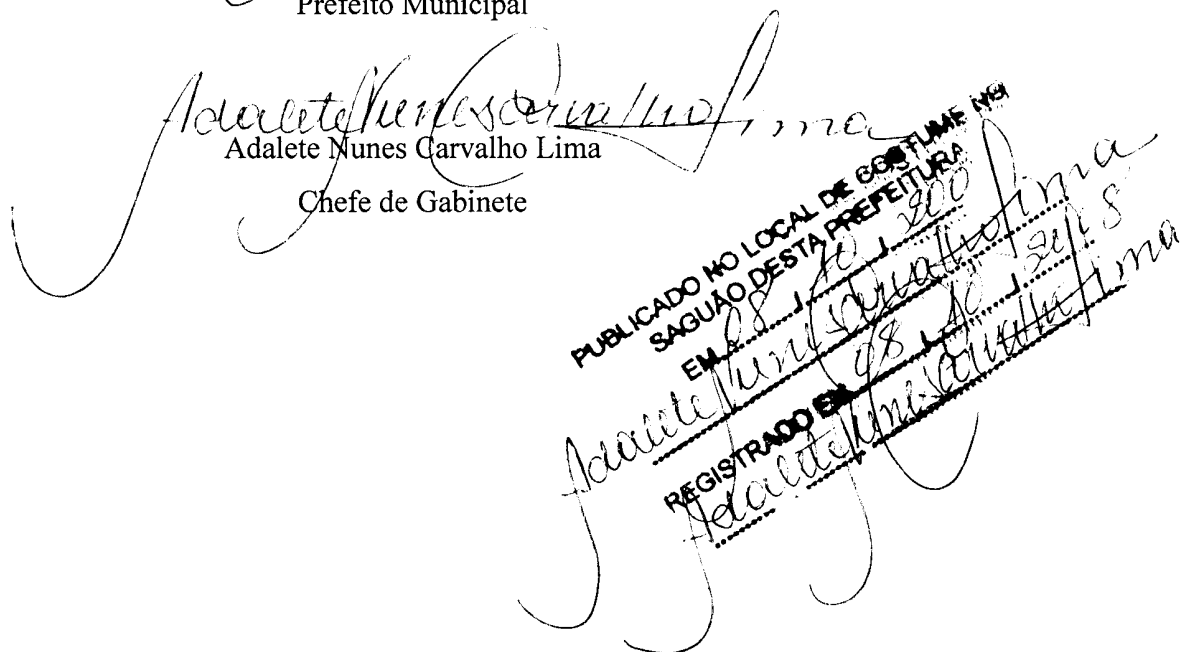 Prefeito Municipal
Adalete Nunes Carvalho Lima
Adalete Nunes Carvalho Lima
Chefe de Gabinete
PUBLICADO NO LOCAL DE COSTUME NO
SAGUÃO DESTA PREFEITURA
EM 08 / 10 / 200
Adalete Nunes Carvalho Lima
REGISTRADO EM 08 / 10 /
Adalete Nunes Carvalho Lima